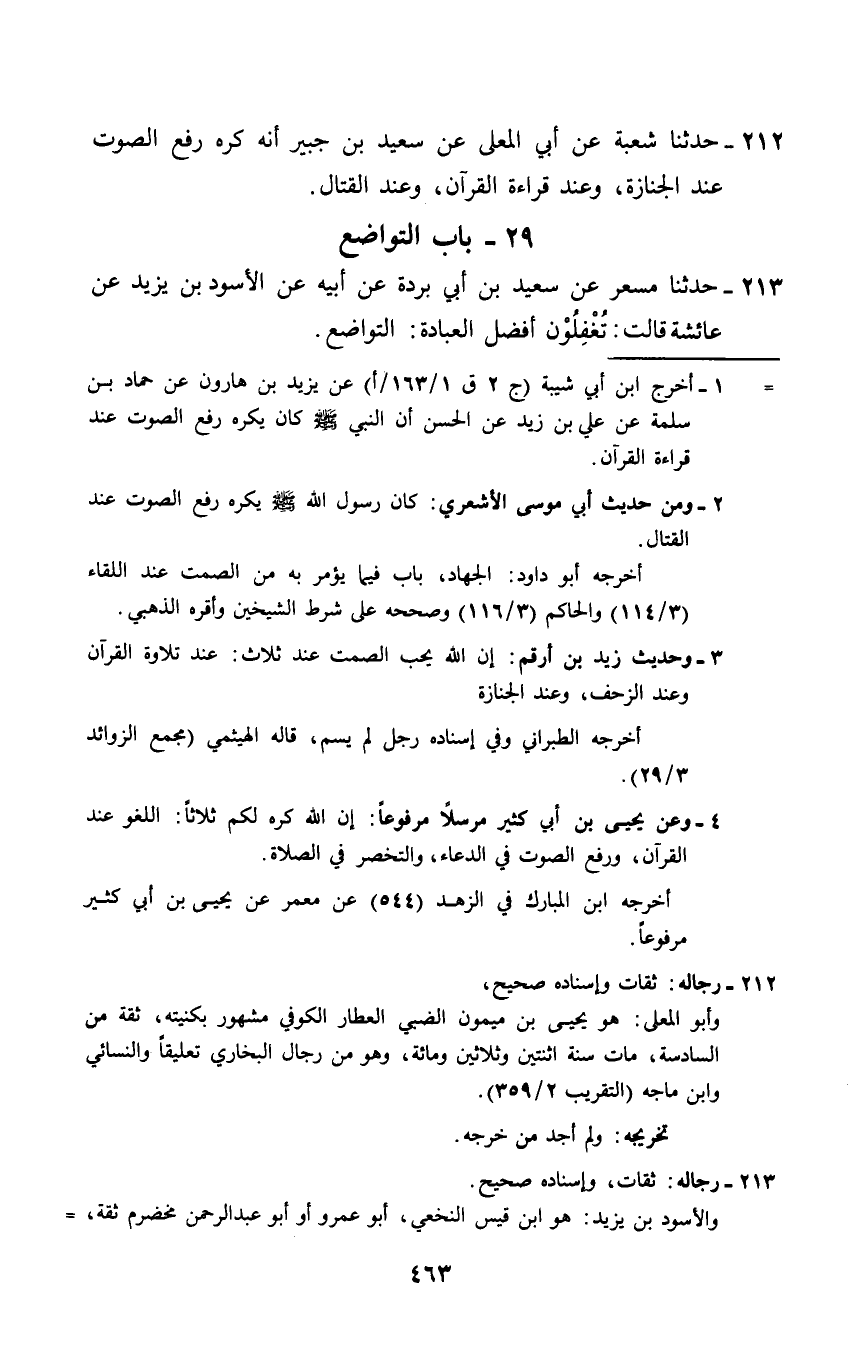 ٢١٢ ـ حدثنا شعبة عن أبي المعلى عن سعيد بن جبير أنه كره رفع الصوت
عند الجنازة، وعند قراءة القرآن، وعند القتال.
٢٩ ـ باب التواضع
٢١٣ ـ حدثنا مسعر عن سعيد بن أبي بردة عن أبيه عن الأسود بن يزيد عن
عائشة قالت: تُغْفِلُوْن أفضل العبادة: التواضع.
= ١ ـ أخرج ابن أبي شيبة (ج ٢ ق ١/١٦٣/أ) عن يزيد بن هارون عن حماد بن
سلمة عن علي بن زيد عن الحسن أن النبي ﷺ كان يكره رفع الصوت عند
قراءة القرآن.
٢ ـ ومن حديث أبي موسى الأشعري: كان رسول الله ﷺ يكره رفع الصوت عند
القتال.
أخرجه أبو داود: الجهاد، باب فيما يؤمر به من الصمت عند اللقاء
(٣/١١٤) والحاكم (٣/١١٦) وصححه على شرط الشيخين وأقره الذهبي.
٣ ـ وحديث زيد بن أرقم: إن الله يحب الصمت عند ثلاث: عند تلاوة القرآن
وعند الزحف، وعند الجنازة
أخرجه الطبراني وفي إسناده رجل لم يسم، قاله الهيثمي (مجمع الزوائد
٣/٢٩).
٤ ـ وعن يحيى بن أبي كثير مرسلاً مرفوعاً: إن الله كره لكم ثلاثاً: اللغو عند
القرآن، ورفع الصوت في الدعاء، والتخصر في الصلاة.
أخرجه ابن المبارك في الزهد (٥٤٤) عن معمر عن يحيى بن أبي كثير
مرفوعاً.
٢١٢ ـ رجاله: ثقات وإسناده صحيح،
وأبو المعلى: هو يحيى بن ميمون الضبي العطار الكوفي مشهور بكنيته، ثقة من
السادسة، مات سنة اثنتين وثلاثين ومائة، وهو من رجال البخاري تعليقاً والنسائي
وابن ماجه (التقريب ٢/٣٥٩).
تخريجه: ولم أجد من خرجه.
٢١٣ ـ رجاله: ثقات، وإسناده صحيح.
والأسود بن يزيد: هو ابن قيس النخعي، أبو عمرو أو أبو عبدالرحمن مخضرم ثقة، =
٤٦٣